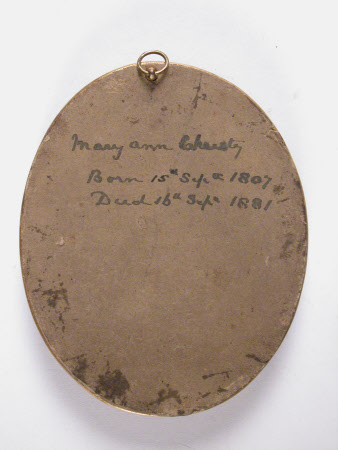 Mary ann Christy
Born 15th Sepr 1807
Died 16th Sepr 1881